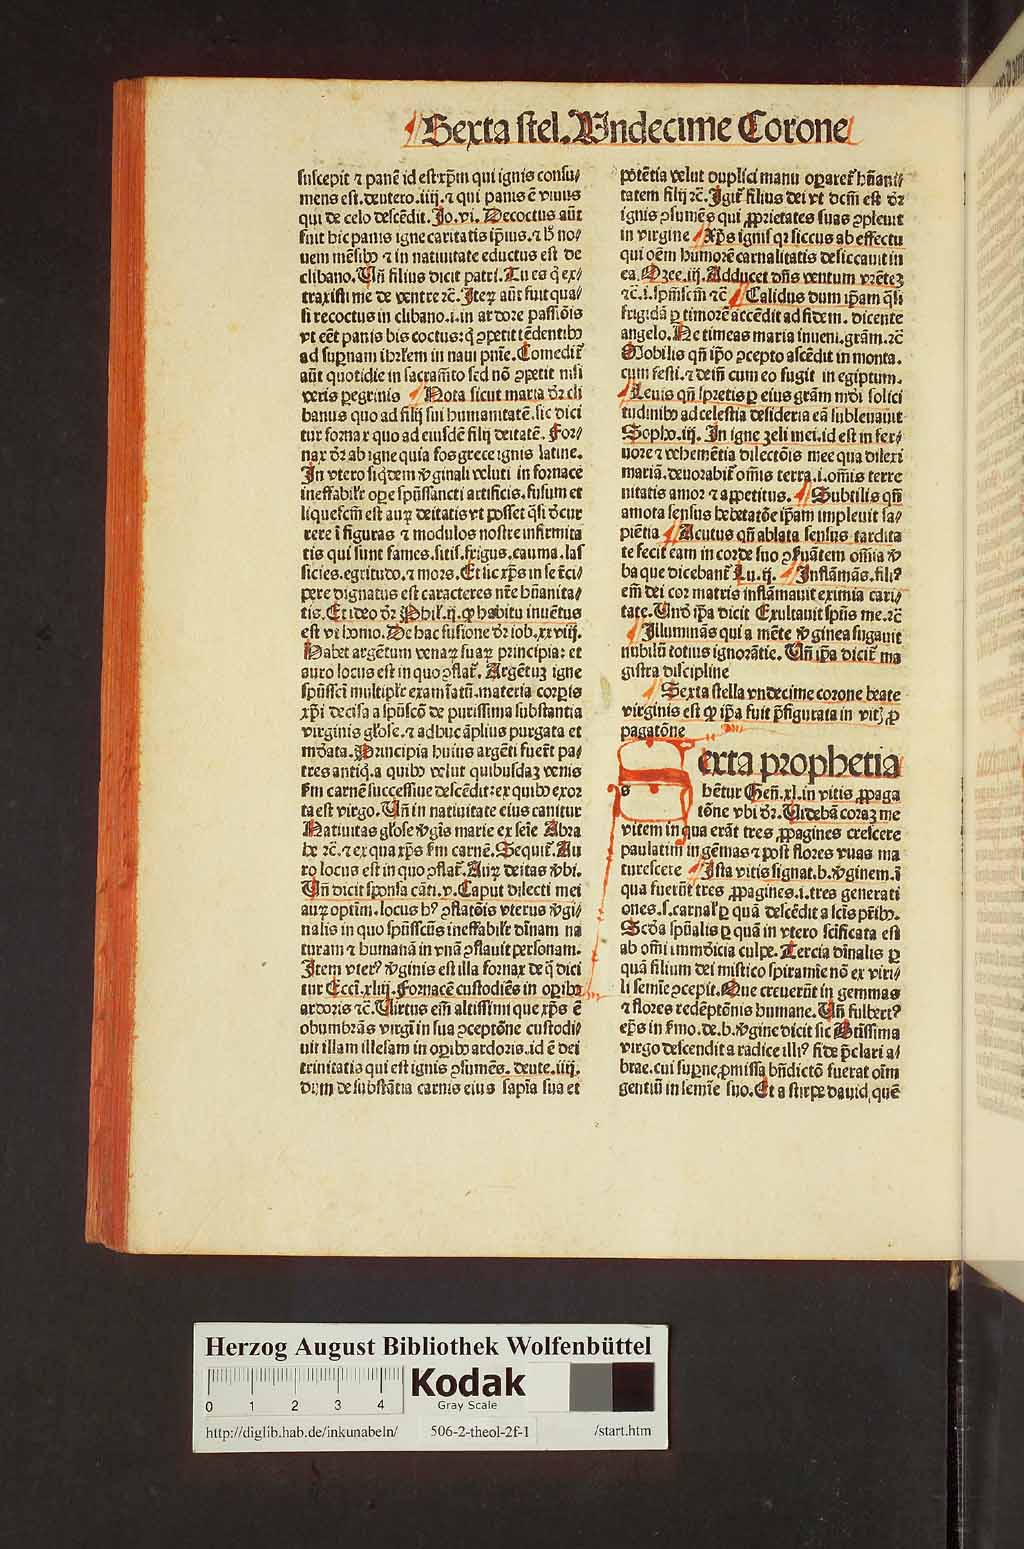 Sexta stel. Undecime Corone
suscepit ⁊ panē id est xp̄m qui ignis consu⸗
mens est. deutero .iiij. ⁊ qui panis ē viuus
qui de celo descēdit. Jo. vi. Decoctus aūt
fuit hic panis igne caritatis ip̄ius. ⁊ no⸗
uem mēsibꝰ ⁊ in natiuitate eductus est de
clibano. Uñ filius dicit patri. Tu es q̄ ex⸗
traxisti me de ventre ⁊c̄. Iteꝝ aūt fuit qua⸗
si recoctus in clibano .i. in ardore passiōis
vt eēt panis bis coctus: ꝯpetit tēdentibꝰ
ad sup̄nam ibrl̄em in naui pn̄te. Comedit᷑
aūt quotidie in sacram̄to sed nō ꝯpetit nisi
veris peregrinis Nota sicut maria d̄r cli
banus quo ad filij sui humanitatē. sic dici
tur fornax quo ad eiusdē filij deitatē. For⸗
nax d̄r ab igne quia fos grece ignis latine.
In vtero siq̄dem v̄ginali veluti in fornace
ineffabil̓r oꝑe sp̄ussancti artificis. fusum et
liquefcm̄ est auꝝ deitatis vt posset q̄si decur
rere ī figuras ⁊ modulos nostre infirmita
tis qui sunt fames. sitis. frigus. cauma. las
sicies. egritudo. ⁊ mors. Et sic xp̄s in se reci⸗
pere dignatus est caracteres nr̄e hūanita⸗
tis. Et ideo d̄r Phil̓. ij. ꝙ habitu inuētus
est vt homo. De hac fusione d̄r iob. xxviij.
Habet argētum venaꝝ suaꝝ principia: et
auro locus est in quo ꝯflat᷑. Argētuꝫ igne
sp̄ussci multipl̓r examīatū. materia corꝑis
xp̄i decisa a sp̄uscō de purissima substantia
virginis gl̓ose. ⁊ adhuc āplius purgata et
mūdata. Principia huius argēti fuer̄t pa⸗
tres antiq̄. a quibꝰ velut quibusdaꝫ venis
s̄m carnē successiue descēdit: ex quibꝰ exor
ta est virgo. Uñ in natiuitate eius canitur
Natiuitas gl̓ose v̄gīs marie ex seīe Abra
he ⁊c̄. ⁊ ex qua xp̄s s̄m carnē. Sequit᷑. Au
ro locus est in quo ꝯflat᷑. Auꝝ deitas v̄bi.
Uñ dicit sponsa cāti. v. Caput dilecti mei
auꝝ optim̄. locus hꝰ ꝯflatōis vterus v̄gi⸗
nalis in quo sp̄usscūs ineffabil̓r diuinam na
turam ⁊ humanā in vnā ꝯflauit personam.
Item vterꝰ v̄ginis est illa fornax de q̄ dici
tur Ecci. xliij. Fornacē custodiēs in oꝑibꝰ
ardoris ⁊c̄. Uirtus em̄ altissimi que xp̄s ē
obumbrās virgī in sua ꝯceptōne custodi⸗
uit illam illesam in oꝑibꝰ ardoris. id ē dei
trinitatis qui est ignis ꝯsumēs. deute. iiij.
dum de substātia carnis eius sapīa sua et
potētia velut duplici manu oꝑaret᷑ hūani⸗
tatem filij ⁊c̄. Igit᷑ filius dei vt dcm̄ est d̄r
ignis ꝯsumēs qui ꝓprietates suas ꝯpleuit
in virgine Xp̄s ignis qi siccus ab effectu
qui oēm humorē carnalitatis desiccauit in
ea. Ozee. iij. Adducet dn̄s ventum vrēteꝫ
⁊c̄. i. sp̄mscm̄ ⁊c̄ Calidus dum ip̄am q̄si
frigidā ꝑ timorē accēdit ad fidem. dicente
angelo. Ne timeas maria inueni. grām. ⁊c̄
Mobilis qn̄ ip̄o ꝯcepto ascēdit in monta.
cum festi. ⁊ dein̄ cum eo fugit in egiptum.
Leuis qn̄ spretis ꝑ eius grām mūdi solici
tudinibꝰ ad celestia desideria eā subleuauit
Sopho. iij. In igne zeli mei. id est in fer⸗
uore ⁊ vehemētia dilectōis mee qua dilexi
mariā. deuorabit᷑ om̄is terra .i. om̄is terre
nitatis amor ⁊ appetitus. Subtilis qn̄
amota sensus hebetatōe ip̄am impleuit sa⸗
piētia Acutus qn̄ ablata sensus tardita
te fecit eam in corde suo ꝯseruātem om̄ia v̄
ba que dicebant᷑ Lu. ij. Inflāmās. filiꝰ
em̄ dei cor matris inflāmauit eximia cari⸗
tate. Uñ ip̄a dicit Exultauit sp̄us me. ⁊c̄
Illuminās qui a mēte v̄ginea fugauit
nubilū totius ignorātie. Uñ ip̄a dicit᷑ ma
gistra discipline
Sexta stella vndecime corone beate
virginis est ꝙ ip̄a fuit p̄figurata in vitꝫ ꝓ
pagatōne
Sexta prophetia
habētur Geñ. xl. in vitis ꝓpaga
tōne vbi d̄r. Uidebā coraꝫ me
vitem in qua erāt tres ꝓpagines crescere
paulatim in gēmas ⁊ post flores vuas ma
turescere Ista vitis signat. b. v̄ginem. ī
qua fuerūt tres ꝓpagines .i. tres generati
ones. s. carnal̓ ꝑ quā descēdit a scīs pr̄ibꝰ.
Scd̄a sp̄ualis ꝑ quā in vtero scificata est
ab omī immūdicia culpe. Tercia diuinalis ꝑ
quā filium dei mistico spiramīe nō ex viri⸗
li semīe ꝯcepit. Que creuerūt in gemmas
⁊ flores redēptōnis humane. Uñ fulbertꝰ
ep̄s in s̄mo. de. b. v̄gine dicit sic Btīssima
virgo descendit a radice illiꝰ fide p̄clari a⸗
brae. cui suꝑne ꝓmissa bn̄dictō fuerat oīm
gentiū in semīe suo. Et a stirpe dauid, quē
Herzog August Bibliothek Wolfenbüttel
0 1 2 3 4
Kodak
Gray Scale
http://diglib.hab.de/inkunabeln/ 506-2-theol-2f-1 /start.htm